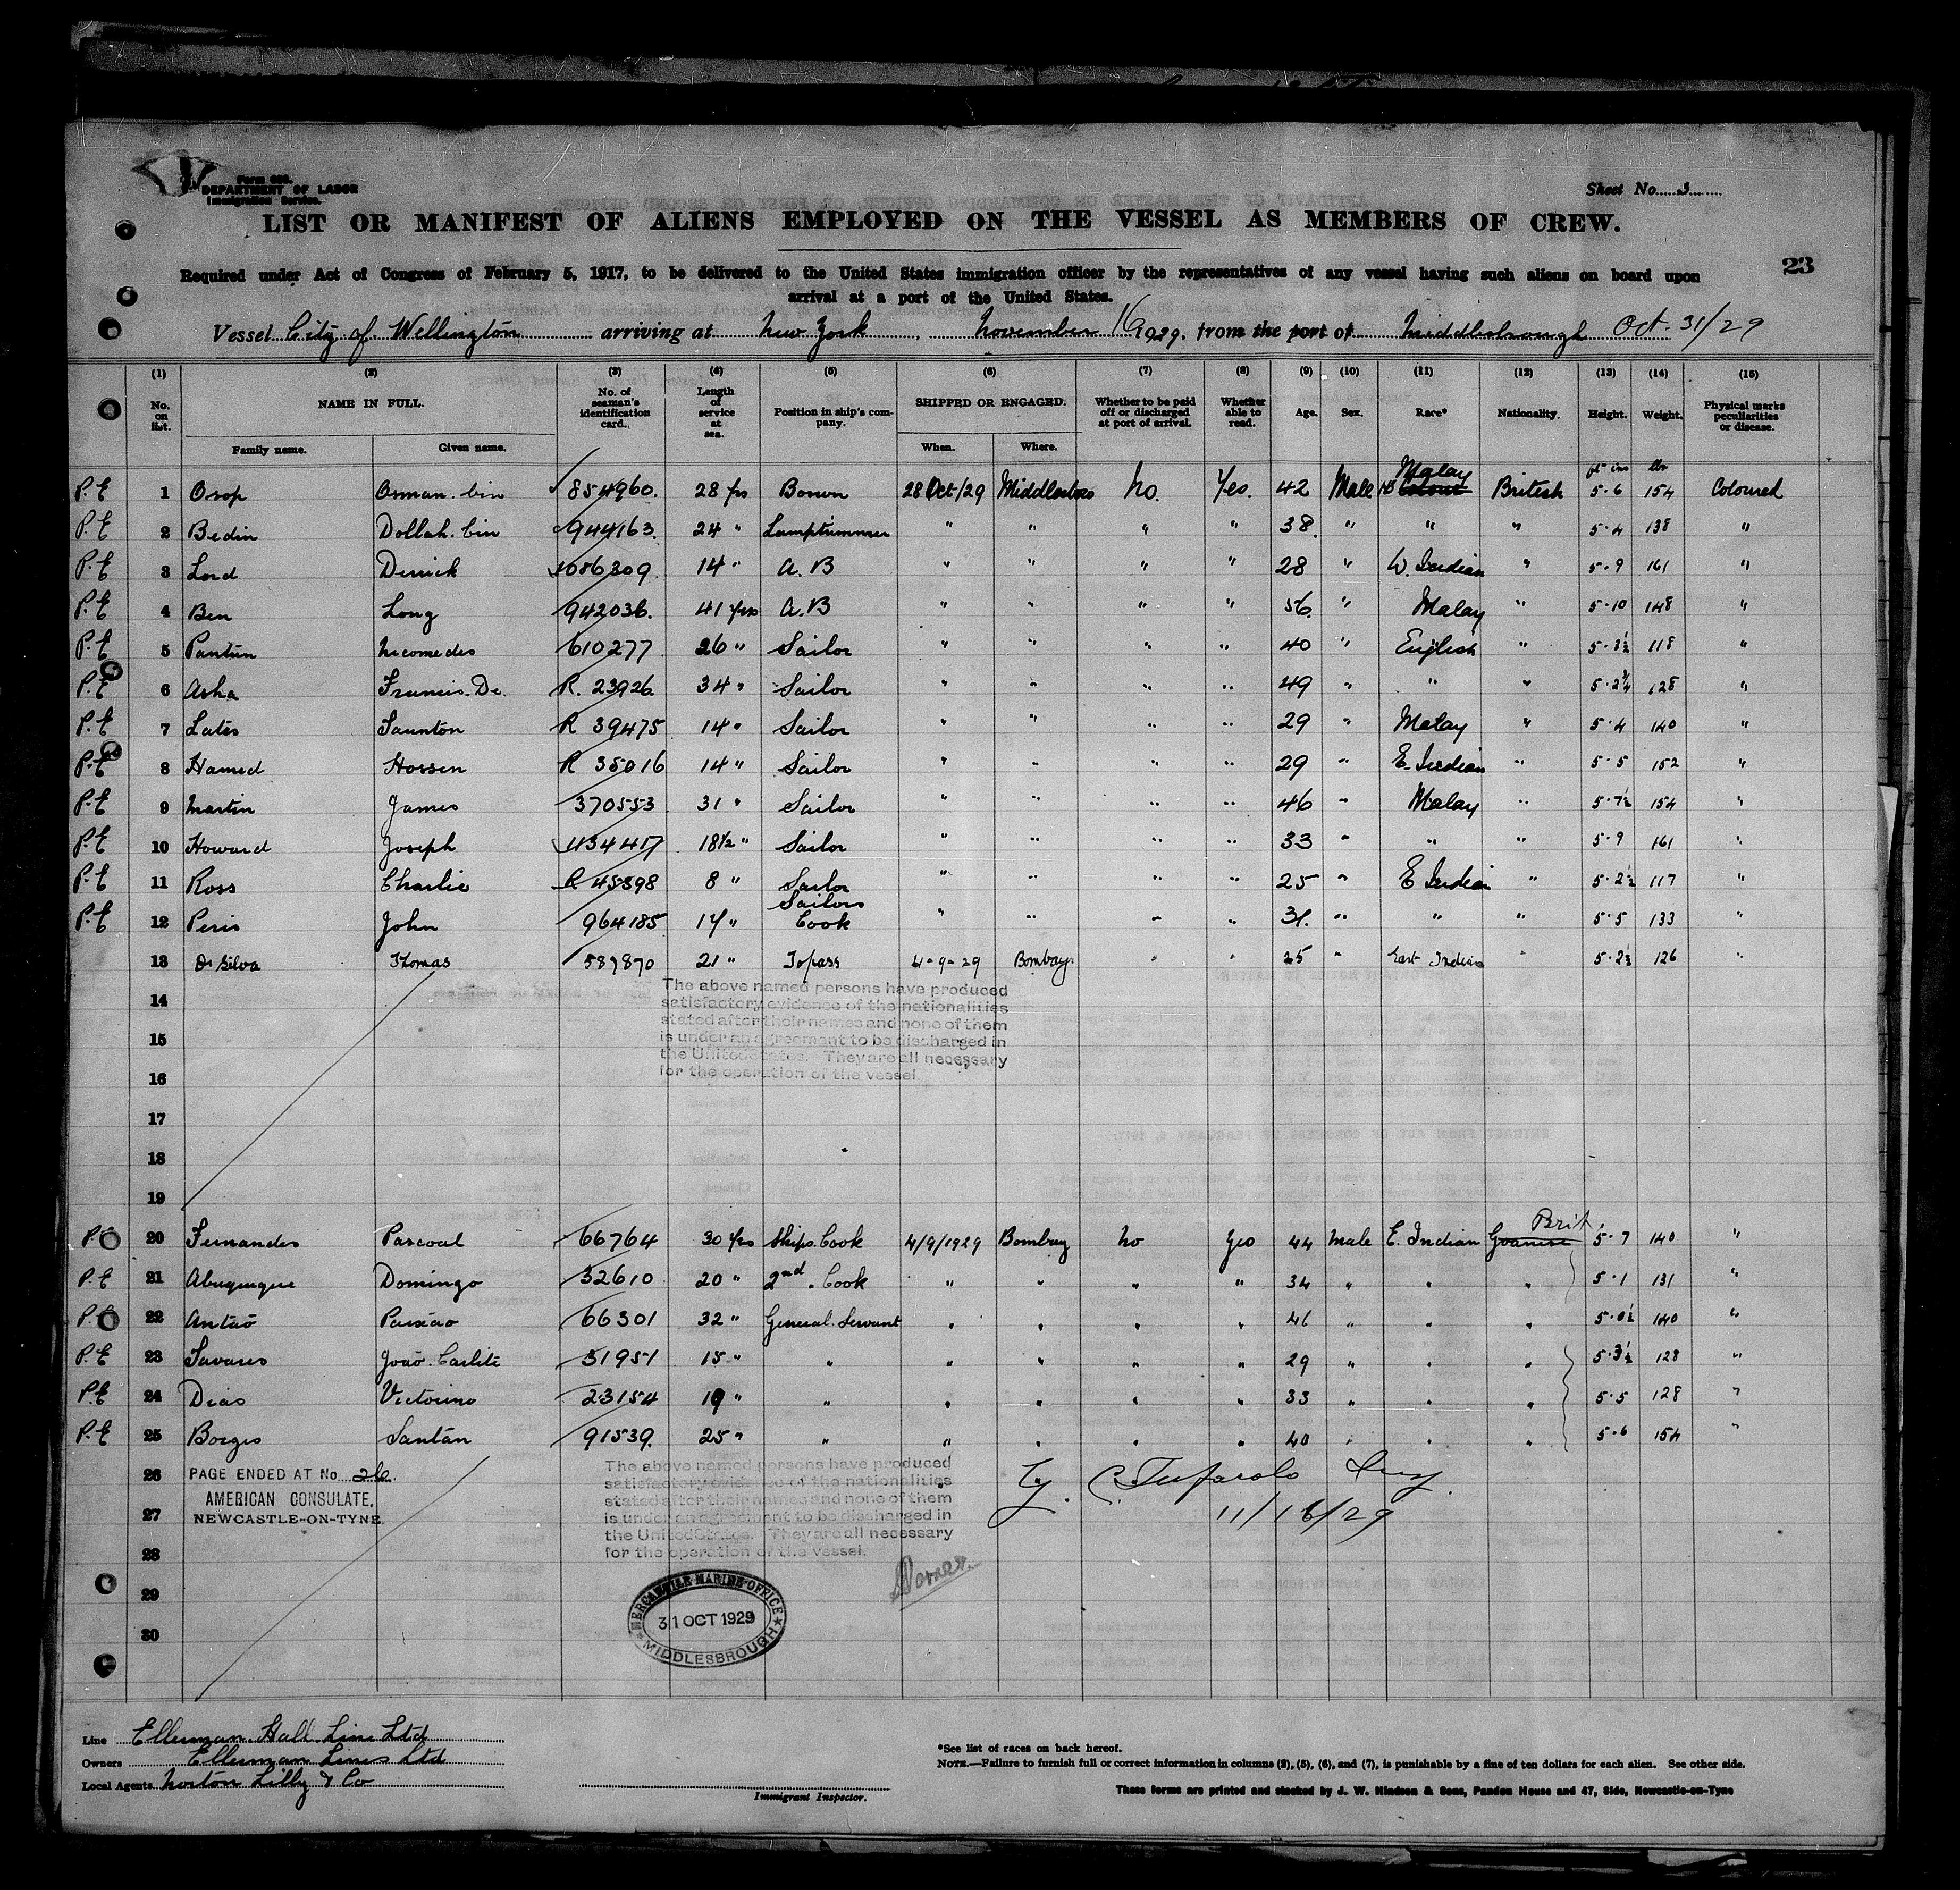 Form 680.
DEPARTMENT OF LABOR
Immigration Service.
Sheet No. 3
LIST OR MANIFEST OF ALIENS EMPLOYED ON THE VESSEL AS MEMBERS OF CREW.
23
Required under Act of Congress of February 5, 1917, to be delivered to the United States immigration officer by the representatives of any vessel having such aliens on board upon
arrival at a port of the United States.
Vessel City of Wellington arriving at New York, November 16 1929, from the port of Middlesbrough Oct. 31/29
(1) (2) (3) (4) (5) (6) (7) (8) (9) (10) (11) (12) (13) (14) (15)
No. on list. NAME IN FULL. No. of seaman's identification card. Length of service at sea. Position in ship's company. SHIPPED OR ENGAGED. Whether to be paid off or discharged at port of arrival. Whether able to read. Age. Sex. Race* Nationality. Height. Weight. Physical marks peculiarities or disease.
Family name. Given name. When. Where.
ft ins lbs
P.E 1 Osop Osman. bin 854960. 28 yrs Bosun 28 Oct/29 Middlesbro No. Yes. 42 Male Malay British 5.6 154 Coloured
P.E 2 Bedin Dollah. bin 944163. 24 " Lamptrimmer " " " " 38. " " " 5.4 138 "
P.E 3 Lord Derrick 1086309 14 " A.B " " " " 28 " W. Indian " 5.9 161 "
P.E 4 Ben Long 942036. 41 yrs A.B " " " " 56. " Malay " 5.10 148 "
P.E 5 Pantun Nicomedes 610277 26 " Sailor " " " " 40 " English " 5.3½ 118 "
P.E 6 Asha Francis. De. R. 23926 34 " Sailor " " " " 49 " " " 5.2¾ 128 "
P.E 7 Lates Saunton R 39475 14 " Sailor " " " " 29 " Malay " 5.4 140 "
P.E 8 Hamed Hossen R 35016 14 " Sailor " " " " 29 " E. Indian " 5.5 152 "
P.E 9 Martin James 370553 31 " Sailor " " " " 46 " Malay " 5.7½ 154 "
P.E 10 Howard Joseph 434417 18½ " Sailor " " " " 33 " " " 5.9 161 "
P.E 11 Ross Charlie 45398 8 " Sailor " " " " 25 " E Indian " 5.2½ 117 "
P.E 12 Peris John 964185 17 " Sailors Cook " " " " 31. " " " 5.5 133 "
13 De Silva Thomas 587870 21 " Topass 4-9-29 Bombay " " 25 " East Indian " 5.2½ 126 "
14
The above named persons have produced
satisfactory evidence of the nationalities
stated after their names and none of them
15
is under an agreement to be discharged in
the United States. They are all necessary
16
for the operation of the vessel.
17
18
19
P.E 20 Fernandes Pascoal 66764 30 yrs Ships. Cook 4/9/1929 Bombay No Yes 44 Male E. Indian Goanese Brit. 5.7 140 "
P.E 21 Abuquerque Domingo 32610 20 " 2nd. Cook " " " " 34 " " " 5.1 131 "
P.E 22 Antao Paixao 66301 32 " General. Servant " " " " 46 " " " 5.0½ 140 "
P.E 23 Tavares João. Carlite 51951 15 " " " " " " 29 " " " 5.3½ 128 "
P.E 24 Dias Victorino 23154 19 " " " " " " 33 " " " 5.5 128 "
P.E 25 Borges Santan 91539. 25 " " " " " " 40 " " " 5.6 154 "
26 PAGE ENDED AT No 26.
AMERICAN CONSULATE,
27 NEWCASTLE-ON-TYNE.
The above named persons have produced
satisfactory evidence of the nationalities
stated after their names and none of them
is under an agreement to be discharged in
the United States. They are all necessary
for the operation of the vessel.
11/16/29
28
29
30
MERCANTILE MARINE OFFICE
31 OCT 1929
MIDDLESBROUGH
Line Ellerman Hall Line Ltd
Owners Ellerman Lines Ltd
Local Agents Norton Lilly & Co
Immigrant Inspector.
*See list of races on back hereof.
NOTE.—Failure to furnish full or correct information in columns (2), (5), (6), and (7), is punishable by a fine of ten dollars for each alien. See other side.
These forms are printed and stocked by J. W. Hindson & Sons, Pandon House and 47, Side, Newcastle-on-Tyne